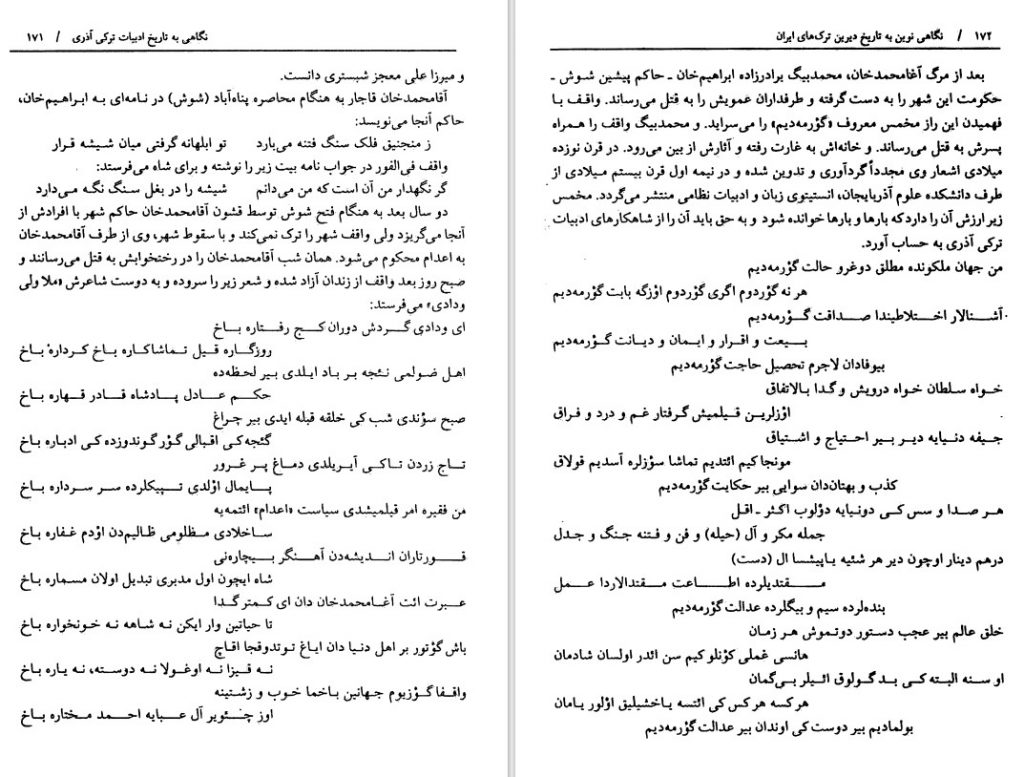 ۱۷۲ / نگاهی نوین به تاریخ دیرین ترک‌های ایران
بعد از مرگ آغامحمدخان، محمدبیگ برادرزاده ابراهیم‌خان ـ حاکم پیشین شوش ـ
حکومت این شهر را به دست گرفته و طرفداران عمویش را به قتل می‌رساند. واقف با
فهمیدن این راز مخمس معروف «گؤرمه‌دیم» را می‌سراید. و محمدبیگ واقف را همراه
پسرش به قتل می‌رساند. و خانه‌اش به غارت رفته و آثارش از بین می‌رود. در قرن نوزده
میلادی اشعار وی مجدداً گردآوری و تدوین شده و در نیمه اول قرن بیستم میلادی از
طرف دانشکده علوم آذربایجان، انستیتوی زبان و ادبیات نظامی منتشر می‌گردد. مخمس
زیر ارزش آن را دارد که بارها و بارها خوانده شود و به حق باید آن را از شاهکارهای ادبیات
ترکی آذری به حساب آورد.
من جهان ملکونده مطلق دوغرو حالت گؤرمه‌دیم
هر نه گؤردوم اگری گؤردوم اوزگه بابت گؤرمه‌دیم
آشنالار اختلاطیندا صداقت گؤرمه‌دیم
بیعت و اقرار و ایمان و دیانت گؤرمه‌دیم
بیوفادان لاجرم تحصیل حاجت گؤرمه‌دیم
خواه سلطان خواه درویش و گدا بالاتفاق
اؤزلرین قیلمیش گرفتار غم و درد و فراق
جیفه دنیایه دیر بیر احتیاج و اشتیاق
مونجاکیم ائتدیم تماشا سؤزلره آسدیم قولاق
کذب و بهتان‌دان سوایی بیر حکایت گؤرمه‌دیم
هر صدا و سس کی دونیایه دؤلوب اکثر ـ اقل
جمله مکر و آل (حیله) و فن و فتنه جنگ و جدل
درهم دینار اوچون دیر هر شئیه یاپیشا ال (دست)
مقتدیلرده اطاعت مقتدالاردا عمل
بنده‌لرده سیم و بیگلرده عدالت گؤرمه‌دیم
خلق عالم بیر عجب دستور دوتموش هر زمان
هانسی غملی کؤنلو کیم سن ائدر اولسان شادمان
او سنه البته کی بد گولوق ائیلر بی‌گمان
هر کسه هر کس کی ائتسه یاخشیلیق اؤلور یامان
بولمادیم بیر دوست کی اوندان بیر عدالت گؤرمه‌دیم
نگاهی به تاریخ ادبیات ترکی آذری / ۱۷۱
و میرزا علی معجز شبستری دانست.
آقامحمدخان قاجار به هنگام محاصره پناه‌آباد (شوش) در نامه‌ای به ابراهیم‌خان،
حاکم آنجا می‌نویسد:
ز منجنیق فلک سنگ فتنه می‌بارد تو ابلهانه گرفتی میان شیشه قرار
واقف فی‌الفور در جواب نامه بیت زیر را نوشته و برای شاه می‌فرستد:
گر نگهدار من آن است که من می‌دانم شیشه را در بغل سنگ نگه می‌دارد
دو سال بعد به هنگام فتح شوش توسط قشون آقامحمدخان حاکم شهر با افرادش از
آنجا می‌گریزد ولی واقف شهر را ترک نمی‌کند و با سقوط شهر، وی از طرف آقامحمدخان
به اعدام محکوم می‌شود. همان شب آقامحمدخان را در رختخوابش به قتل می‌رسانند و
صبح روز بعد واقف از زندان آزاد شده و شعر زیر را سروده و به دوست شاعرش «ملا ولی
ودادی» می‌فرستد:
ای ودادی گردش دوران کج رفتاره باخ
روزگاره قیل تماشاکاره باخ کرداره باخ
اهل ضولمی نئجه بر باد ایلدی بیر لحظه‌ده
حکم عادل پادشاه قادر قهاره باخ
صبح سؤندی شب کی خلقه قبله ایدی بیر چراغ
گئجه‌کی اقبالی گؤر گوندوزده کی ادباره باخ
تاج زردن تاکی آیریلدی دماغ پر غرور
پایمال اؤلدی تپیکلرده سر سرداره باخ
من فقیره امر قیلمیشدی سیاست «اعدام» ائتمه‌یه
ساخلادی مظلومی ظالیم‌دن اؤدم غفاره باخ
قورتاران اندیشه‌دن آهنگر بیچاره‌نی
شاه ایچون اول مدبری تبدیل اولان مسماره باخ
عبرت ائت آغامحمدخان دان ای کمتر گدا
تا حیاتین وار ایکن نه شاهه نه خونخواره باخ
باش گؤتور بر اهل دنیا دان ایاغ توتدوقجا اقاچ
نه قیزا نه اوغولا نه دوسته، نه یاره باخ
واقفا گؤزیوم جهانین باخما خوب و زشتینه
اوز چئویر آل عبایه احمد مختاره باخ